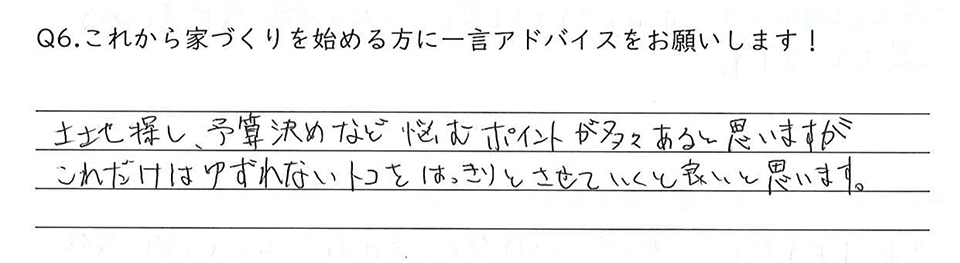 Q6.これから家づくりを始める方に一言アドバイスをお願いします！
土地探し、予算決めなど悩むポイントが多々あると思いますが
これだけはゆずれないトコをはっきりとさせていくと良いと思います。